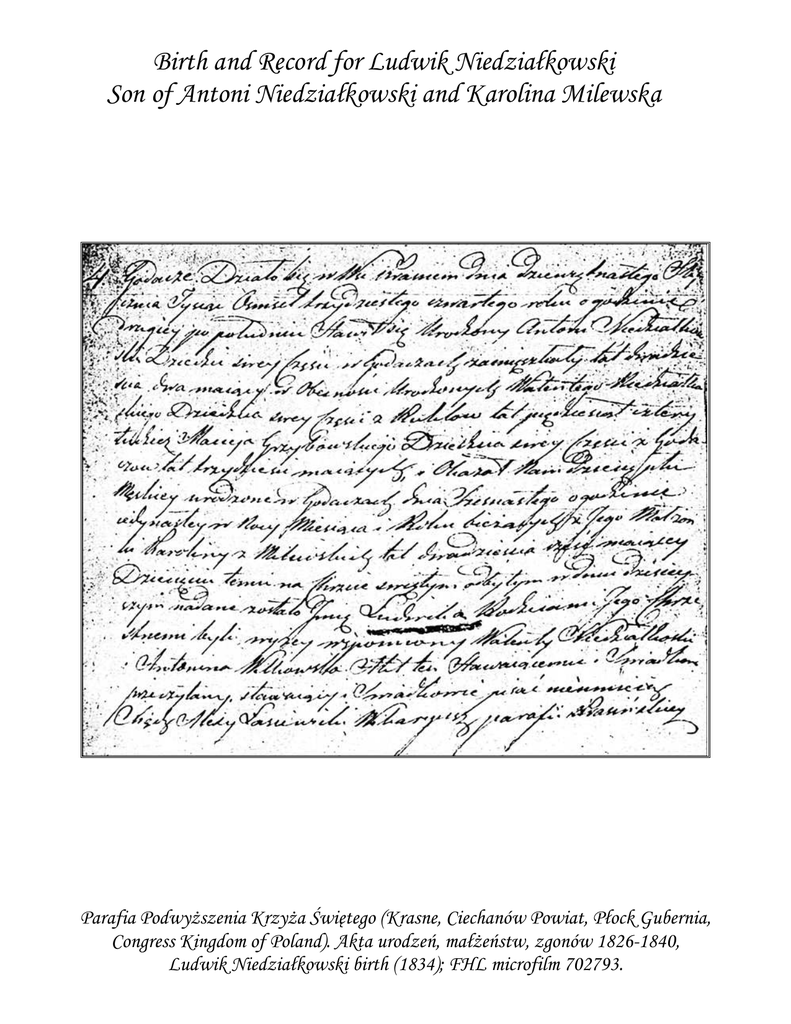 Birth and Record for Ludwik Niedziałkowski
Son of Antoni Niedziałkowski and Karolina Milewska
4. Godacze. Działo się we Wsi Krasnem dnia dziewiętnastego
Tysiąc Osmset trzydziestego czwartego roku o godzinie
drugiey po południu Stawił się Urodzony Antoni Niedziałkow
ski Dziedzic swey Części w Godaczach zamięszkały lat dwadzie
scia dwa maiący w Obecności Urodzonych Walentego Niedziałko
skiego Dziedzica swey Części z lat pięćdziesiąt cztery
tudzież Macieja Grzybowskiego Dziedzica swey Części z Goda
czow lat trzydzieści maiących, i Okazał Nam Dziecię płci
Męskiey urodzone w Godaczach dnia Szesnastego o godzinie
iedynastey w Nocy Miesiąca i Roku bieżących z Jego Małżon
ki Karoliny z Milewskich lat dwadzieścia maiącey
Dziecięciu temu na Chrzcie swiętym odbytym w dniu dzisiey
szym nadane zostało Imię Ludwik a Rodzicami Jego Chrze
stnemi byli wyżey wspomniony Walenty Niedziałkoski
i Antonina Akt ten Stawaiącemu i Swiadkom
przeczytany, stawaiący i Swiadkowie pisać nieumieią
Xiądz Łasiewski parafii Krasińskiey
Parafia Podwyższenia Krzyża Świętego (Krasne, Ciechanów Powiat, Płock Gubernia,
Congress Kingdom of Poland). Akta urodzeń, małżeństw, zgonów 1826-1840,
Ludwik Niedziałkowski birth (1834); FHL microfilm 702793.